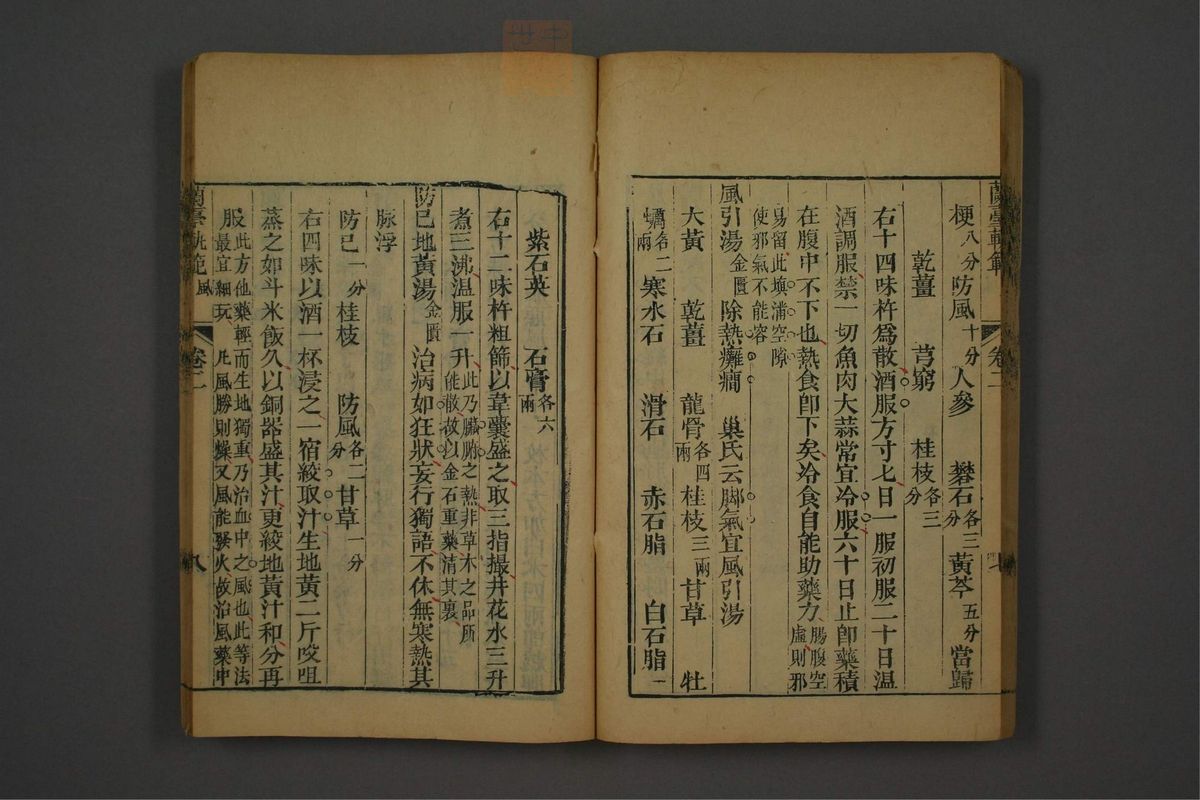 梗八分防風十分人參礬石各三分黃芩五分當歸
乾薑芎窮桂枝各三分
右十四味杵爲散酒服方寸七日一服初服二十日温
酒調服禁一切魚肉大蒜常宜冷服六十日止卽藥積
在腹中不下也熱食卽下矣冷食自能助藥力腸腹空虛則邪
易留此塡滿空隙使邪氣不能容
風引湯金匱除熱癱癎巢氏云脚氣宜風引湯
大黃乾薑龍骨各四兩桂枝三兩甘草牡
蠣各二兩寒水石滑石赤石脂白石脂
紫石英石膏各六兩
右十二味杵粗篩以韋囊盛之取三指撮井花水三升
煮三沸温服一升此乃臟腑之熱非草木之品所能散故以金石重藥清其裏
防已地黃湯金匱治病如狂狀妄行獨語不休無寒熱其
脉浮
防已一分桂枝防風各二分甘草一分
右四味以酒一杯浸之一宿絞取汁生地黃二斤㕮咀
蒸之如斗米飯久以銅器盛其汁更絞地黃汁和分再
服此方他藥輕而生地獨重乃治血中之風也此等法最宜細玩凡風勝則燥又風能發火故治風藥中
蘭臺軌範風卷二八
蘭臺軌範卷二